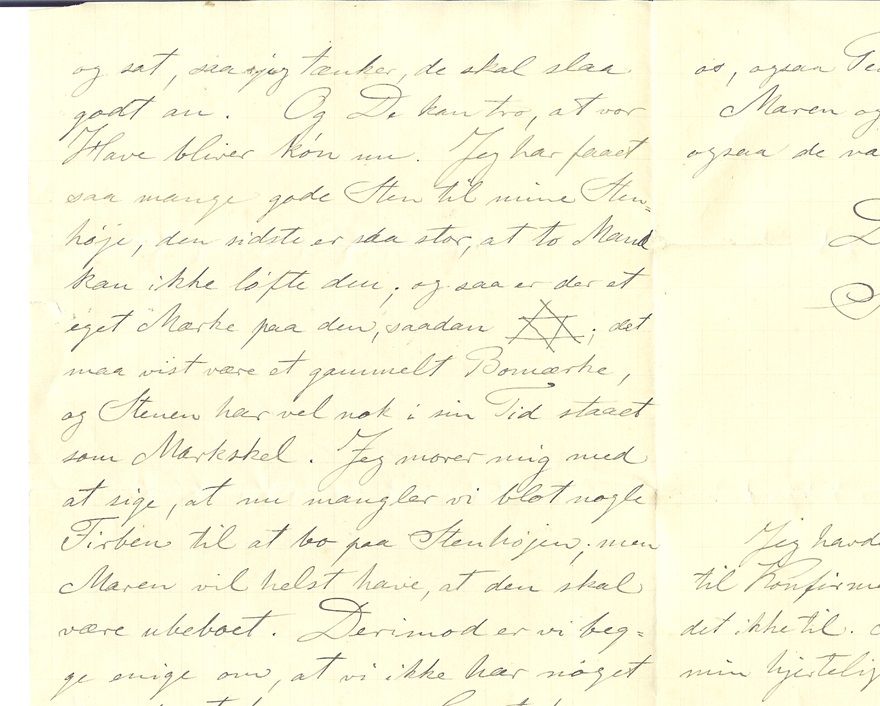 og sat, saa jeg tænker, de skal slaa
godt an. Og De kan tro, at vor
Have bliver køn nu. Jeg har faaet
saa mange gode Sten til mine Sten-
høje, den sidste er saa stor, at to Mand
kan ikke løfte den; og saa er der et
eget Mærke paa den, saadan ; det
maa vist være et gammelt Bomærke,
og Stenen har vel nok i sin Tid staaet
som Markskel. Jeg morer mig med
at sige, at nu mangler vi blot nogle
Firben til at bo paa Stenhøjen; men
Maren vil helst have, at den skal
være ubeboet. Derimod er vi beg-
ge enige om, at vi ikke har noget
os, ogsaa
Maren og
ogsaa de
Jeg havde
til
det ikke til.
min